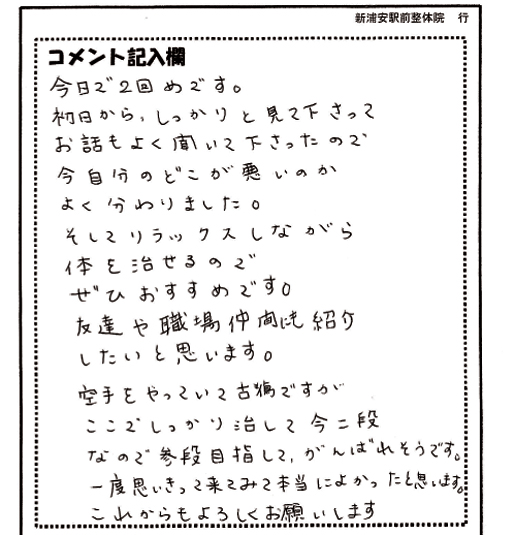 新浦安駅前整体院 行
コメント記入欄
今日で2回めです。
初日から、しっかりと見て下さって
お話もよく聞いて下さったので
今自分のどこが悪いのか
よく分わりました。
そしてリラックスしながら
体を治せるので
ぜひおすすめです。
友達や職場仲間にも紹介
したいと思います。
空手をやっていて古傷ですが
ここでしっかり治して今二段
なので参段目指して、がんばれそうです。
一度思いきって来てみて本当によかったと思います。
これからもよろしくお願いします